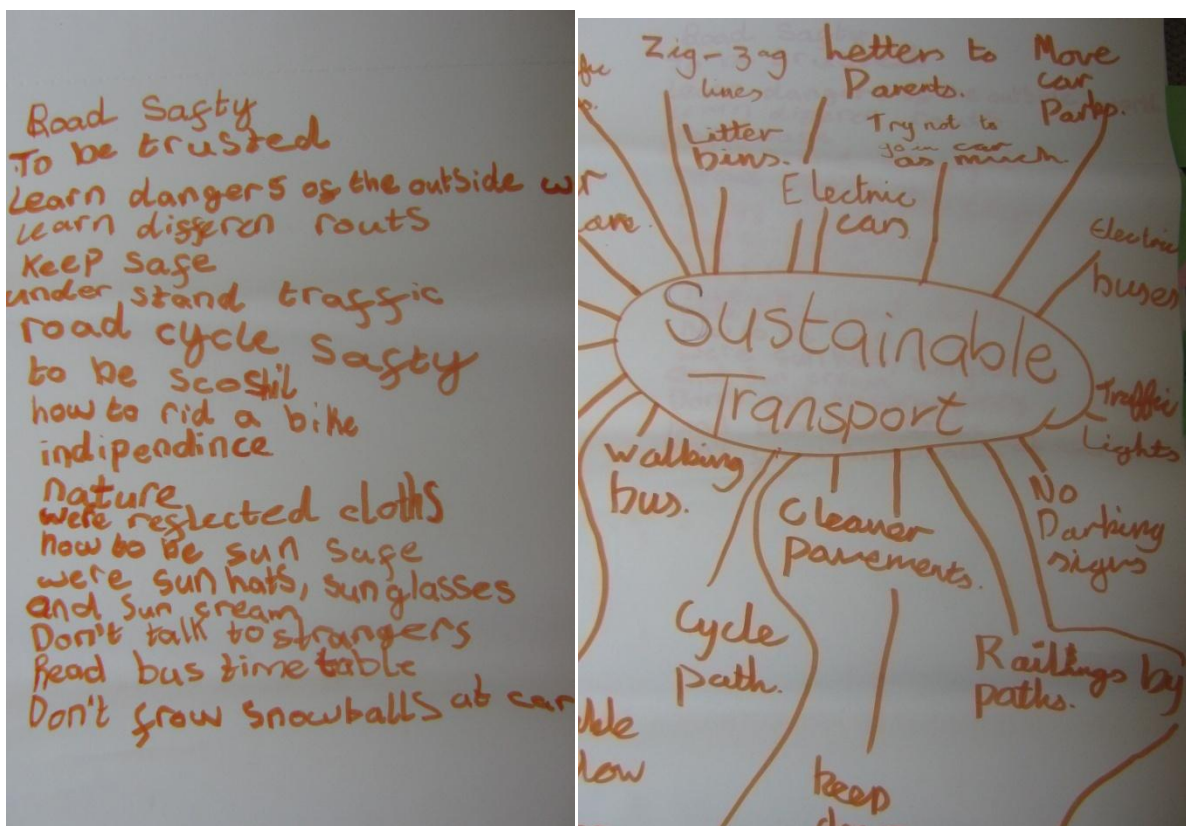 Road Safty
To be trusted
Learn dangers of the outside w
Learn differen routs
Keep safe
under stand traffic
road cycle Safty
to be
how to rid a bike
indipendince
nature
were reflected cloths
how to be sun safe
were sun hats, sunglasses
and sun cream
Don't talk to strangers
Read bus time table
Don't frow snowballs at car
Zig-zag
lines
Letters to
Parents.
Move
car
Parks.
Litter
bins.
Try not to
go in car
as much.
Electric
cars
Electric
buses
Sustainable
Transport
Traffic
Lights
Walking
bus.
Cleaner
pavements.
No
Parking
signs
Cycle
path.
Railings by
paths.
keep